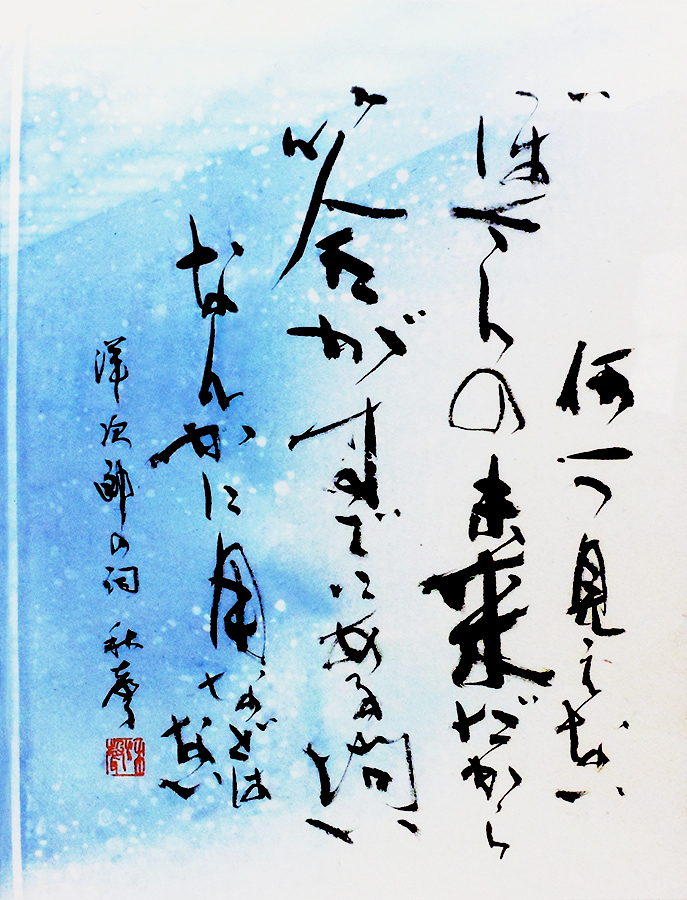 何一つ見えない
ぼくらの未来だから
答がすでにある問い
なんかに用などは
ない
洋次郎の詞 秋